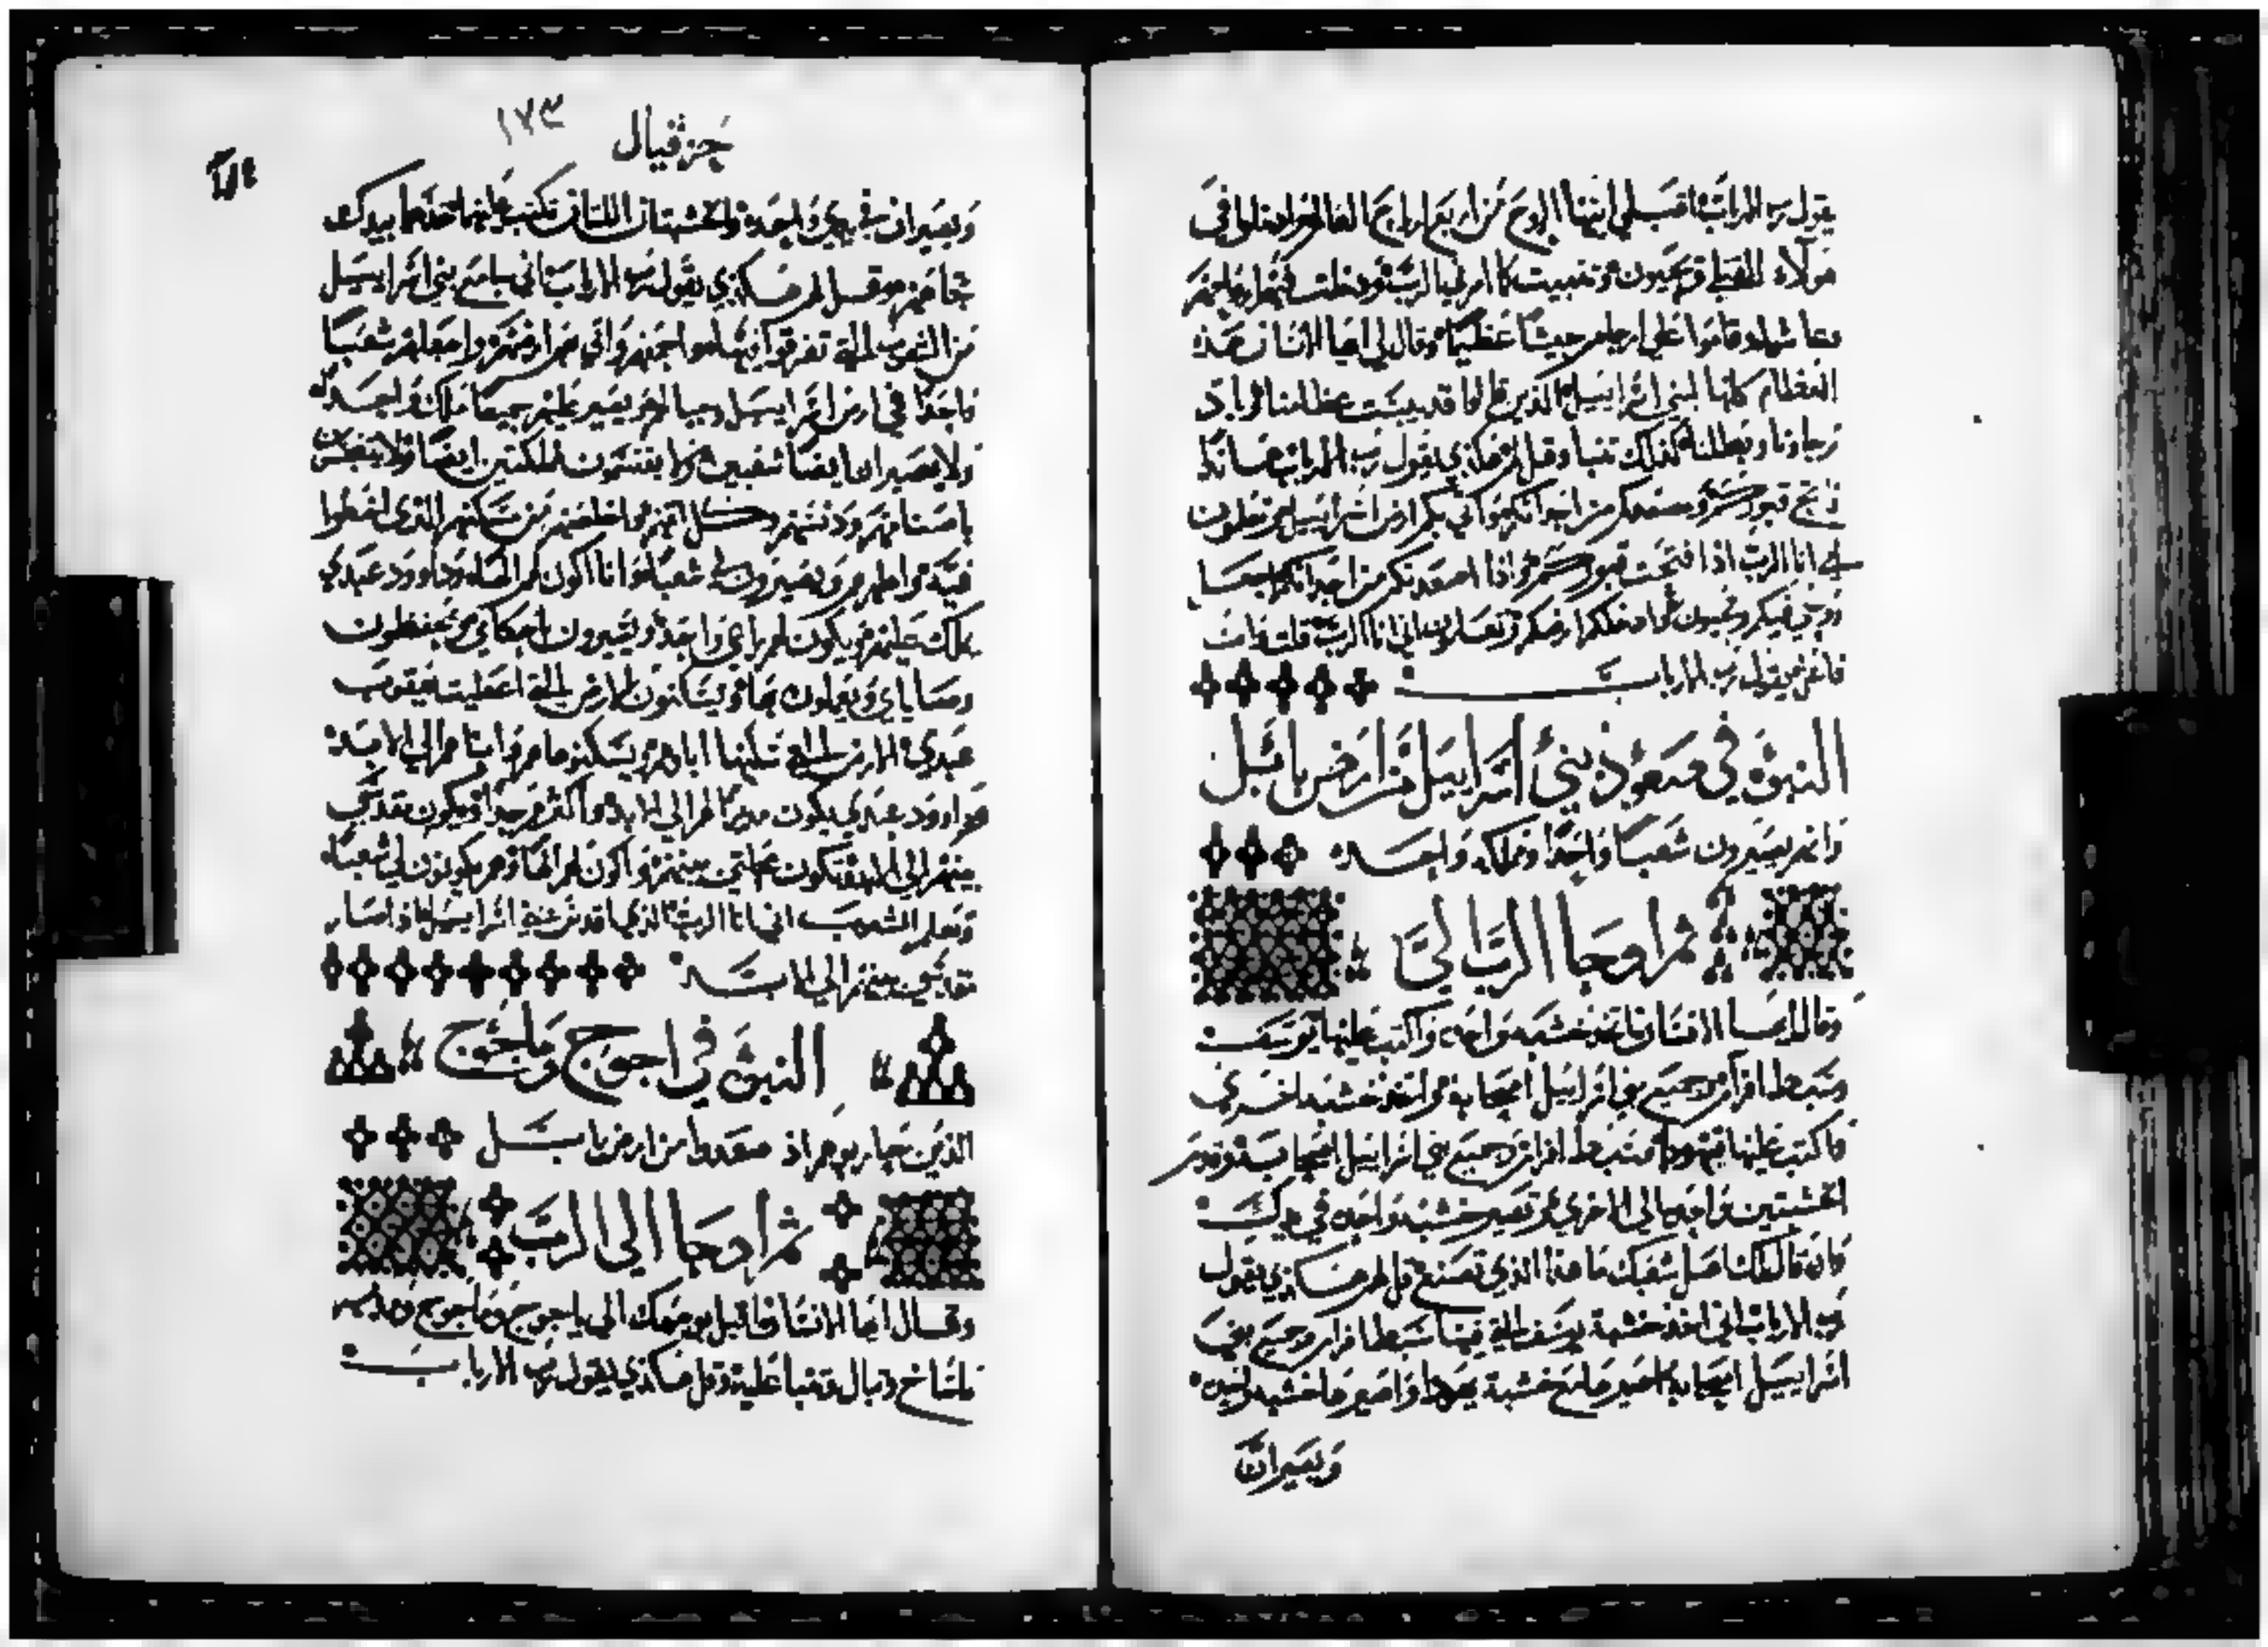 يقول رب الارباب اقبلي ايتها الروح من اربع ارياح العالم وادخلوا في
هولاء القتلى فيحيون وتنبيت كما امرني الرب ودخلت فيهم الروح
وعاشوا وقاموا على ارجلهم جيشا عظيما وقال لي ايها الانسان هذه
العظام كلها لبني اسراييل الذين قالوا قد يبست عظامنا وباد
رجاونا وبطلنا كذلك تنبا وقل لهم هكذي يقول رب الارباب هانذا
فاتح قبوركم ومصعدكم من اجداثكم واتي بكم ارض اسراييل وتعلمون
اني انا الرب اذا فتحت قبوركم واذا اصعدتكم من اجداثكم واجعل
روحي فيكم وتحيون وادخلكم ارضكم وتعلمون اني انا الرب قلت وانا
فاعل يقول رب الارباب
النبوة في صعود بني اسراييل من ارض بابل
وانهم يصيرون شعبا واحدا ومملكه واحده
ثم اوحا الرب الي
وقال ايها الانسان خذ خشبه واحده واكتب عليها يوسف
وسبط افرام وجميع بني اسراييل اصحابه وخذ خشبه اخري
واكتب عليها يهودا وسبط افرام وجميع بني اسراييل اصحابه وقدم
الخشبتين واحده الي الاخري وتصير خشبه واحده في يدك
فان قال لك اهل شعبك ما هذا الذي تصنع قل لهم هكذي يقول
رب الارباب اني اخذ خشبة يوسف التي فيها سبط افرام وجميع بني
اسراييل اصحابه واصيرها مع خشبة يهودا واصيرها خشبه واحده
ويصيران
حزقيال ١٧٣
ويصيران في يدي واحده والخشبتان اللتان تكتب عليهما خذهما بيدك
تجاههم وقل لهم هكذي يقول رب الارباب اني جامع بني اسراييل
من الشعوب التي تفرقوا فيها واجمعهم واتي بهم ارضهم واجعلهم شعبا
واحدا في ارض اسراييل وجبالهم ويصير عليهم جميعا ملك واحد
ولا يصيران ايضا شعبين ولا يقتسمون المملكتين ايضا ولا يتنجسون
باصنامهم ودنسهم وكل اثمهم واخلصهم من مسكنهم الذي اخطوا
فيه واطهرهم ويصيرون لي شعبا وانا اكون لهم الها وداوود عبدي
يملك عليهم ويكون لهم راعي واحد ويسيرون باحكامي ويحفظون
وصاياي ويعملون بها ويسكنون الارض التي اعطيت ليعقوب
عبدي الارض التي سكنها اباوهم ويسكنوها هم وابناهم الي الابد
وداوود عبدي يكون مدبرا لهم الي الابد واكثرهم جدا ويكون مقدسي
بينهم الي الابد وتكون محلتي بينهم واكون لهم الها وهم يكونون لي شعبا
وتعلم الشعوب اني انا الرب الذي اقدس بني اسراييل اذا صار
مقدسي بينهم الي الابد
النبوة في اجوج وماجوج
الذين حاربوهم اذ صعدوا من ارض بابل
ثم اوحا الي الرب
وقال ايها الانسان اقبل بوجهك الي ياجوج وماجوج
ماشاخ وتبال وتنبا عليه وقل هكذي يقول رب الارباب